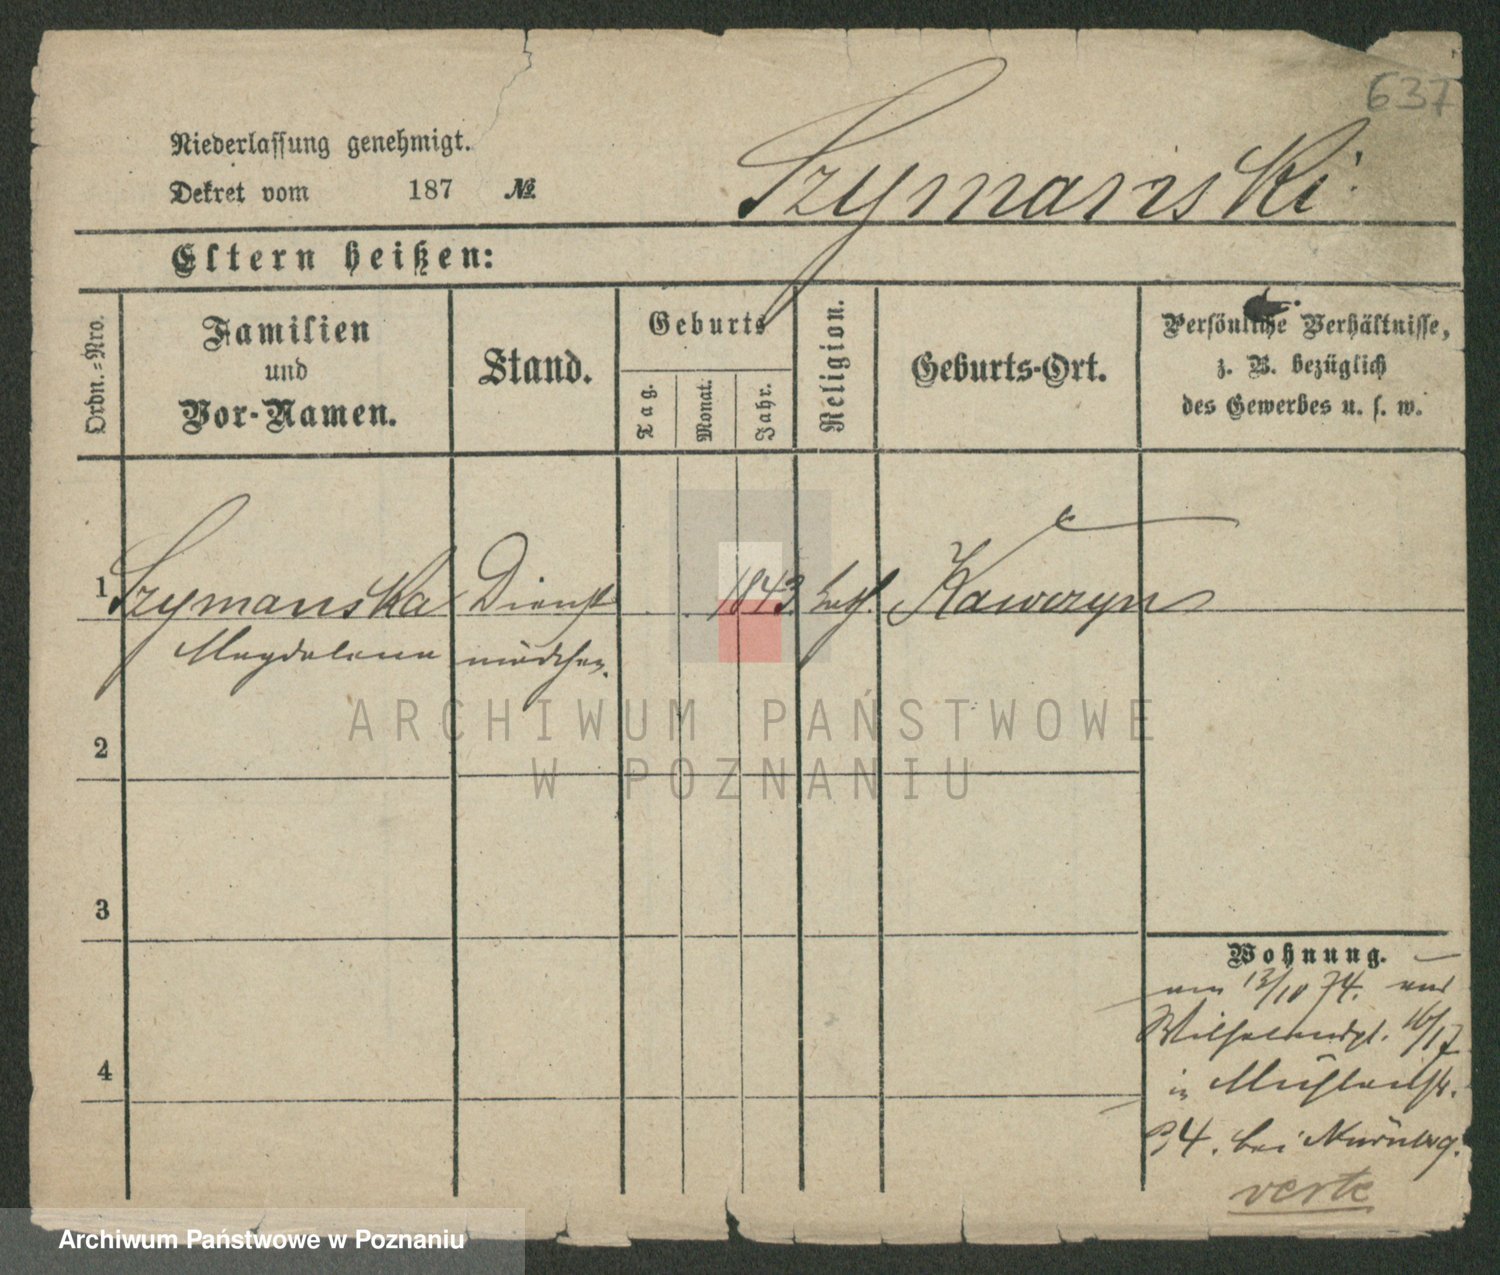 637
Niederlassung genehmigt.
Dekret vom 187 №
Szymanski
Eltern heißen:
Ordn.-Nro.
Familien
und
Vor-Namen.
Stand.
Geburts
Tag.
Monat.
Jahr.
Religion.
Geburts-Ort.
Persönliche Verhältnisse,
z. B. bezüglich
des Gewerbes u. s. w.
1 Szymanska Dienst 1843 kath. Kawczyn
Magdalena mädchen.
2
3
4
Wohnung.
am 13/10 74. aus
Wilhelmspl. 16/17
in
34. bei Nürnberg.
verte
ARCHIWUM PAŃSTWOWE
W POZNANIU
Archiwum Państwowe w Poznaniu